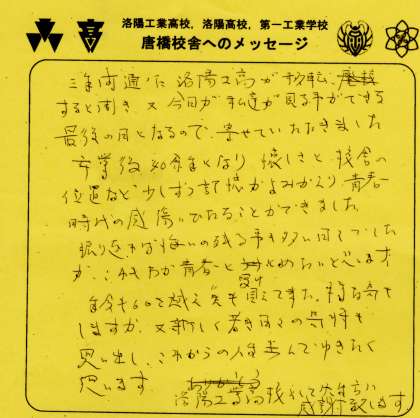 洛陽工業高校，洛陽高校，第一工業学校
唐橋校舎へのメッセージ
高
三年間通った洛陽工高が移転、
すると聞き、又今日が私達が見る事ができる
最後の日となるので、寄せていただきました
卒業後40余年となり、懐しさと、校舎の
位置など少しずつ記憶がよみがえり、青春
時代の感傷にひたることができました。
振り返れば悔いの残る事も多い日々でした
が、これもわが青春と受けとめたいと思います。
年令も60を越え、先も見えてきた様な気も
しますが、又新しく若き日々の気持を
思い出し、これからの人生歩んでゆきたく
思います。
洛陽工業高校そして先生方に
感謝致します